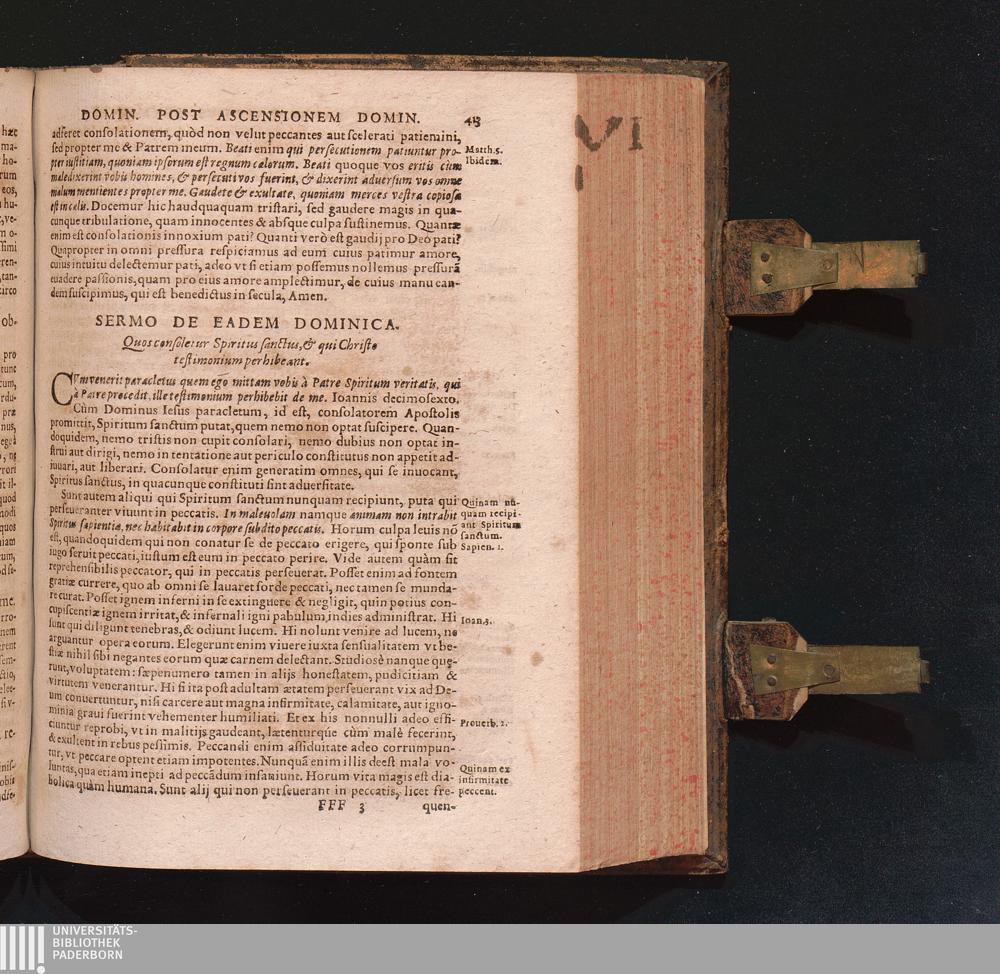 DOMIN. POST ASCENSIONEM DOMIN. 413
adferet consolationem, quòd non velut peccantes aut scelerati patiemini,
sed propter me & Patrem meum. Beati enim qui persecutionem patiuntur pro-
pter iustitiam, quoniam ipsorum est regnum cælorum. Beati quoque vos eritis cùm
maledixerint vobis homines, & persecuti vos fuerint, & dixerint aduersum vos omne
malum mentientes propter me. Gaudete & exultate, quoniam merces vestra copiosa
est in cælis. Docemur hic haudquaquam tristari, sed gaudere magis in qua-
cunque tribulatione, quam innocentes & absque culpa sustinemus. Quantæ
enim est consolationis innoxium pati? Quanti verò est gaudij pro Deo pati?
Quapropter in omni pressura respiciamus ad eum cuius patimur amore,
cuius intuitu delectemur pati, adeo vt si etiam possemus nollemus pressurã
euadere passionis, quam pro eius amore amplectimur, de cuius manu ean-
dem suscipimus, qui est benedictus in secula, Amen.
Matth.5.
Ibidem.
SERMO DE EADEM DOMINICA.
Quos consoletur Spiritus sanctus, & qui Christo
testimonium perhibeant.
CVm venerit paracletus quem ego mittam vobis à Patre Spiritum veritatis, qui
à Patre procedit, ille testimonium perhibebit de me. Ioannis decimosexto.
Cùm Dominus Iesus paracletum, id est, consolatorem Apostolis
promittit, Spiritum sanctum putat, quem nemo non optat suscipere. Quan-
doquidem, nemo tristis non cupit consolari, nemo dubius non optat in-
strui aut dirigi, nemo in tentatione aut periculo constitutus non appetit ad-
iuuari, aut liberari. Consolatur enim generatim omnes, qui se inuocant,
Spiritus sanctus, in quacunque constituti sint aduersitate.
Sunt autem aliqui qui Spiritum sanctum nunquam recipiunt, puta qui
perseueranter viuunt in peccatis. In maleuolam namque animam non intrabit
Spiritus sapientiæ, nec habitabit in corpore subdito peccatis. Horum culpa leuis nõ
est, quandoquidem qui non conatur se de peccato erigere, qui sponte sub
iugo seruit peccati, iustum est eum in peccato perire. Vide autem quàm sit
reprehensibilis peccator, qui in peccatis perseuerat. Posset enim ad fontem
gratiæ currere, quo ab omni se lauaret sorde peccati, nec tamen se munda-
re curat. Posset ignem inferni in se extinguere & negligit, quin potius con-
cupiscentiæ ignem irritat, & infernali igni pabulum indies administrat. Hi
sunt qui diligunt tenebras, & odiunt lucem. Hi nolunt venire ad lucem, ne
arguantur opera eorum. Elegerunt enim viuere iuxta sensualitatem vt be-
stiæ nihil sibi negantes eorum quæ carnem delectant. Studiosè nanque quę-
runt, voluptatem: sæpenumero tamen in alijs honestatem, pudicitiam &
virtutem venerantur. Hi si ita post adultam ætatem perseuerant vix ad De-
um conuertuntur, nisi carcere aut magna infirmitate, calamitate, aut igno-
minia graui fuerint vehementer humiliati. Et ex his nonnulli adeo effi-
ciuntur reprobi, vt in malitijs gaudeant, lætenturq́ue cùm malè fecerint,
& exultent in rebus pessimis. Peccandi enim assiduitate adeo corrumpun-
tur, vt peccare optent etiam impotentes. Nunquã enim illis deest mala vo-
luntas, qua etiam inepti ad peccãdum insaniunt. Horum vita magis est dia-
bolica quàm humana. Sunt alij qui non perseuerant in peccatis, licet fre-
Quinam nũ-
quam recipi-
ant Spiritum
sanctum.
Sapien. 1.
Ioan.3.
Prouerb. 2.
Quinam ex
infirmitate
peccent.
FFF 3 quen-
VI
UNIVERSITÄTS-
BIBLIOTHEK
PADERBORN